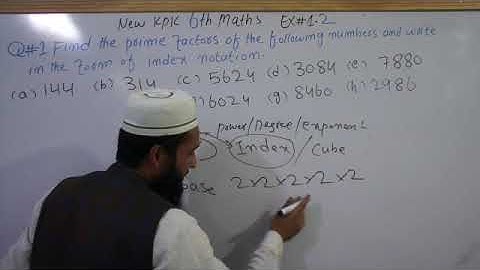 New KPK 6th Maths EX#1.2
Q#1 Find the prime factors of the following numbers and write
in the form of index notation.
(a) 144 (b) 314 (c) 5624 (d) 3084 (e) 7880
6024 (g) 8460 (h) 2986
power/Degree/Exponent
Index / Cube
base 2×2×2×2×2